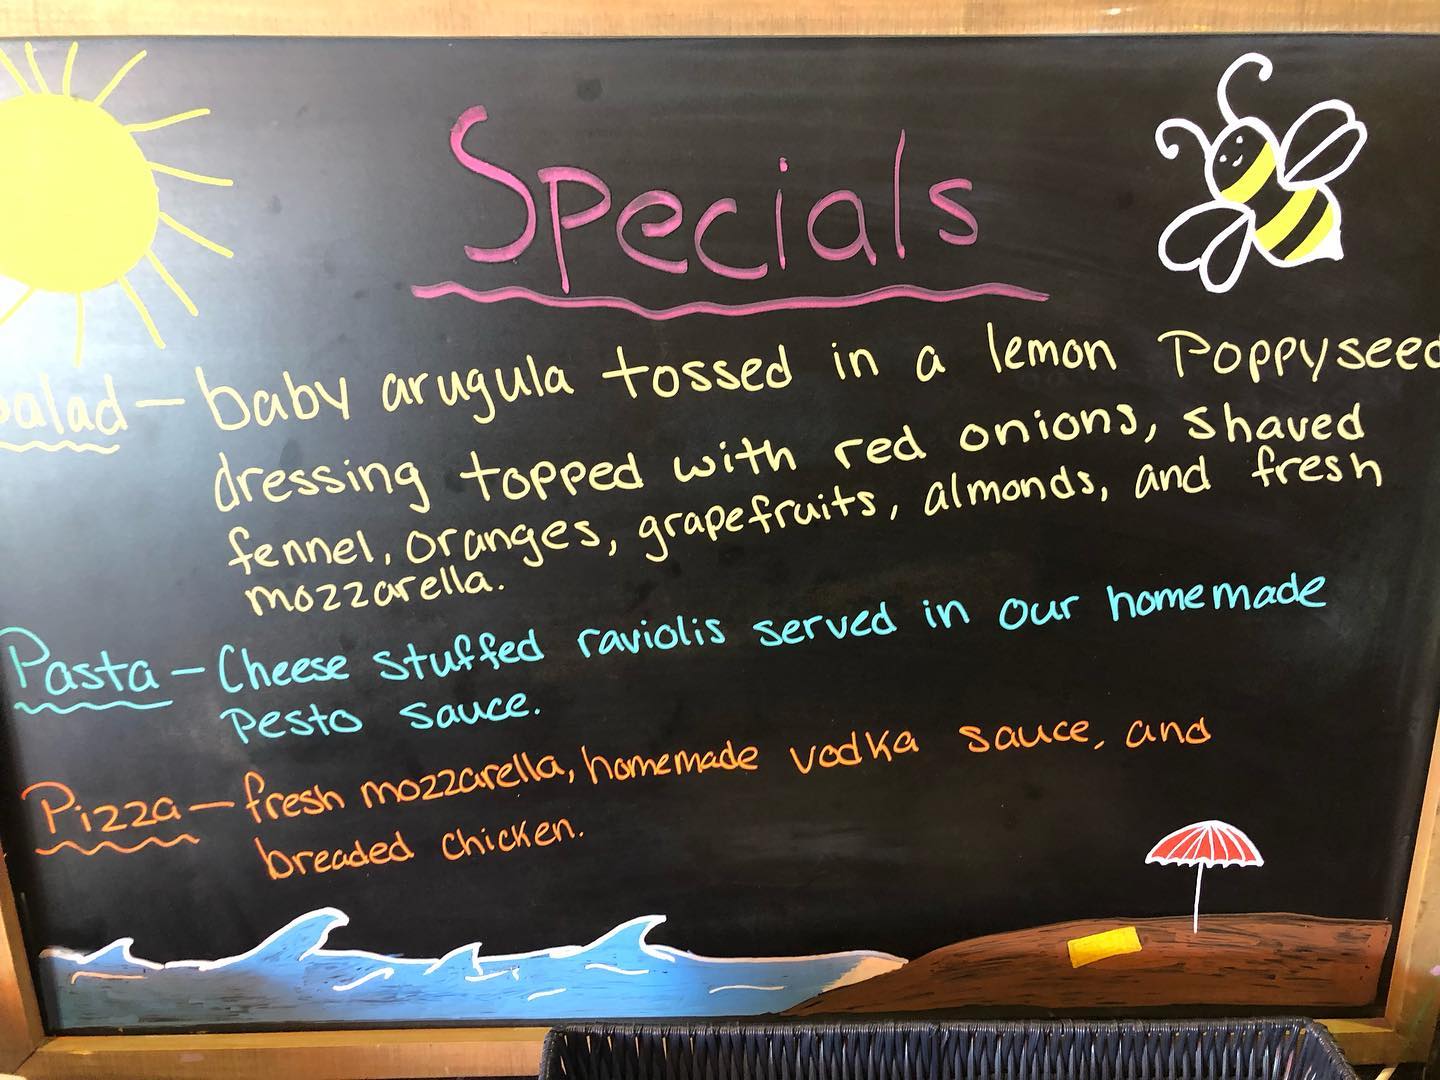 Specials
Salad - baby arugula tossed in a lemon Poppyseed
dressing topped with red onions, shaved
fennel, oranges, grapefruits, almonds, and fresh
mozzarella.
Pasta - Cheese stuffed raviolis served in our homemade
Pesto sauce.
Pizza - fresh mozzarella, homemade vodka sauce, and
breaded chicken.